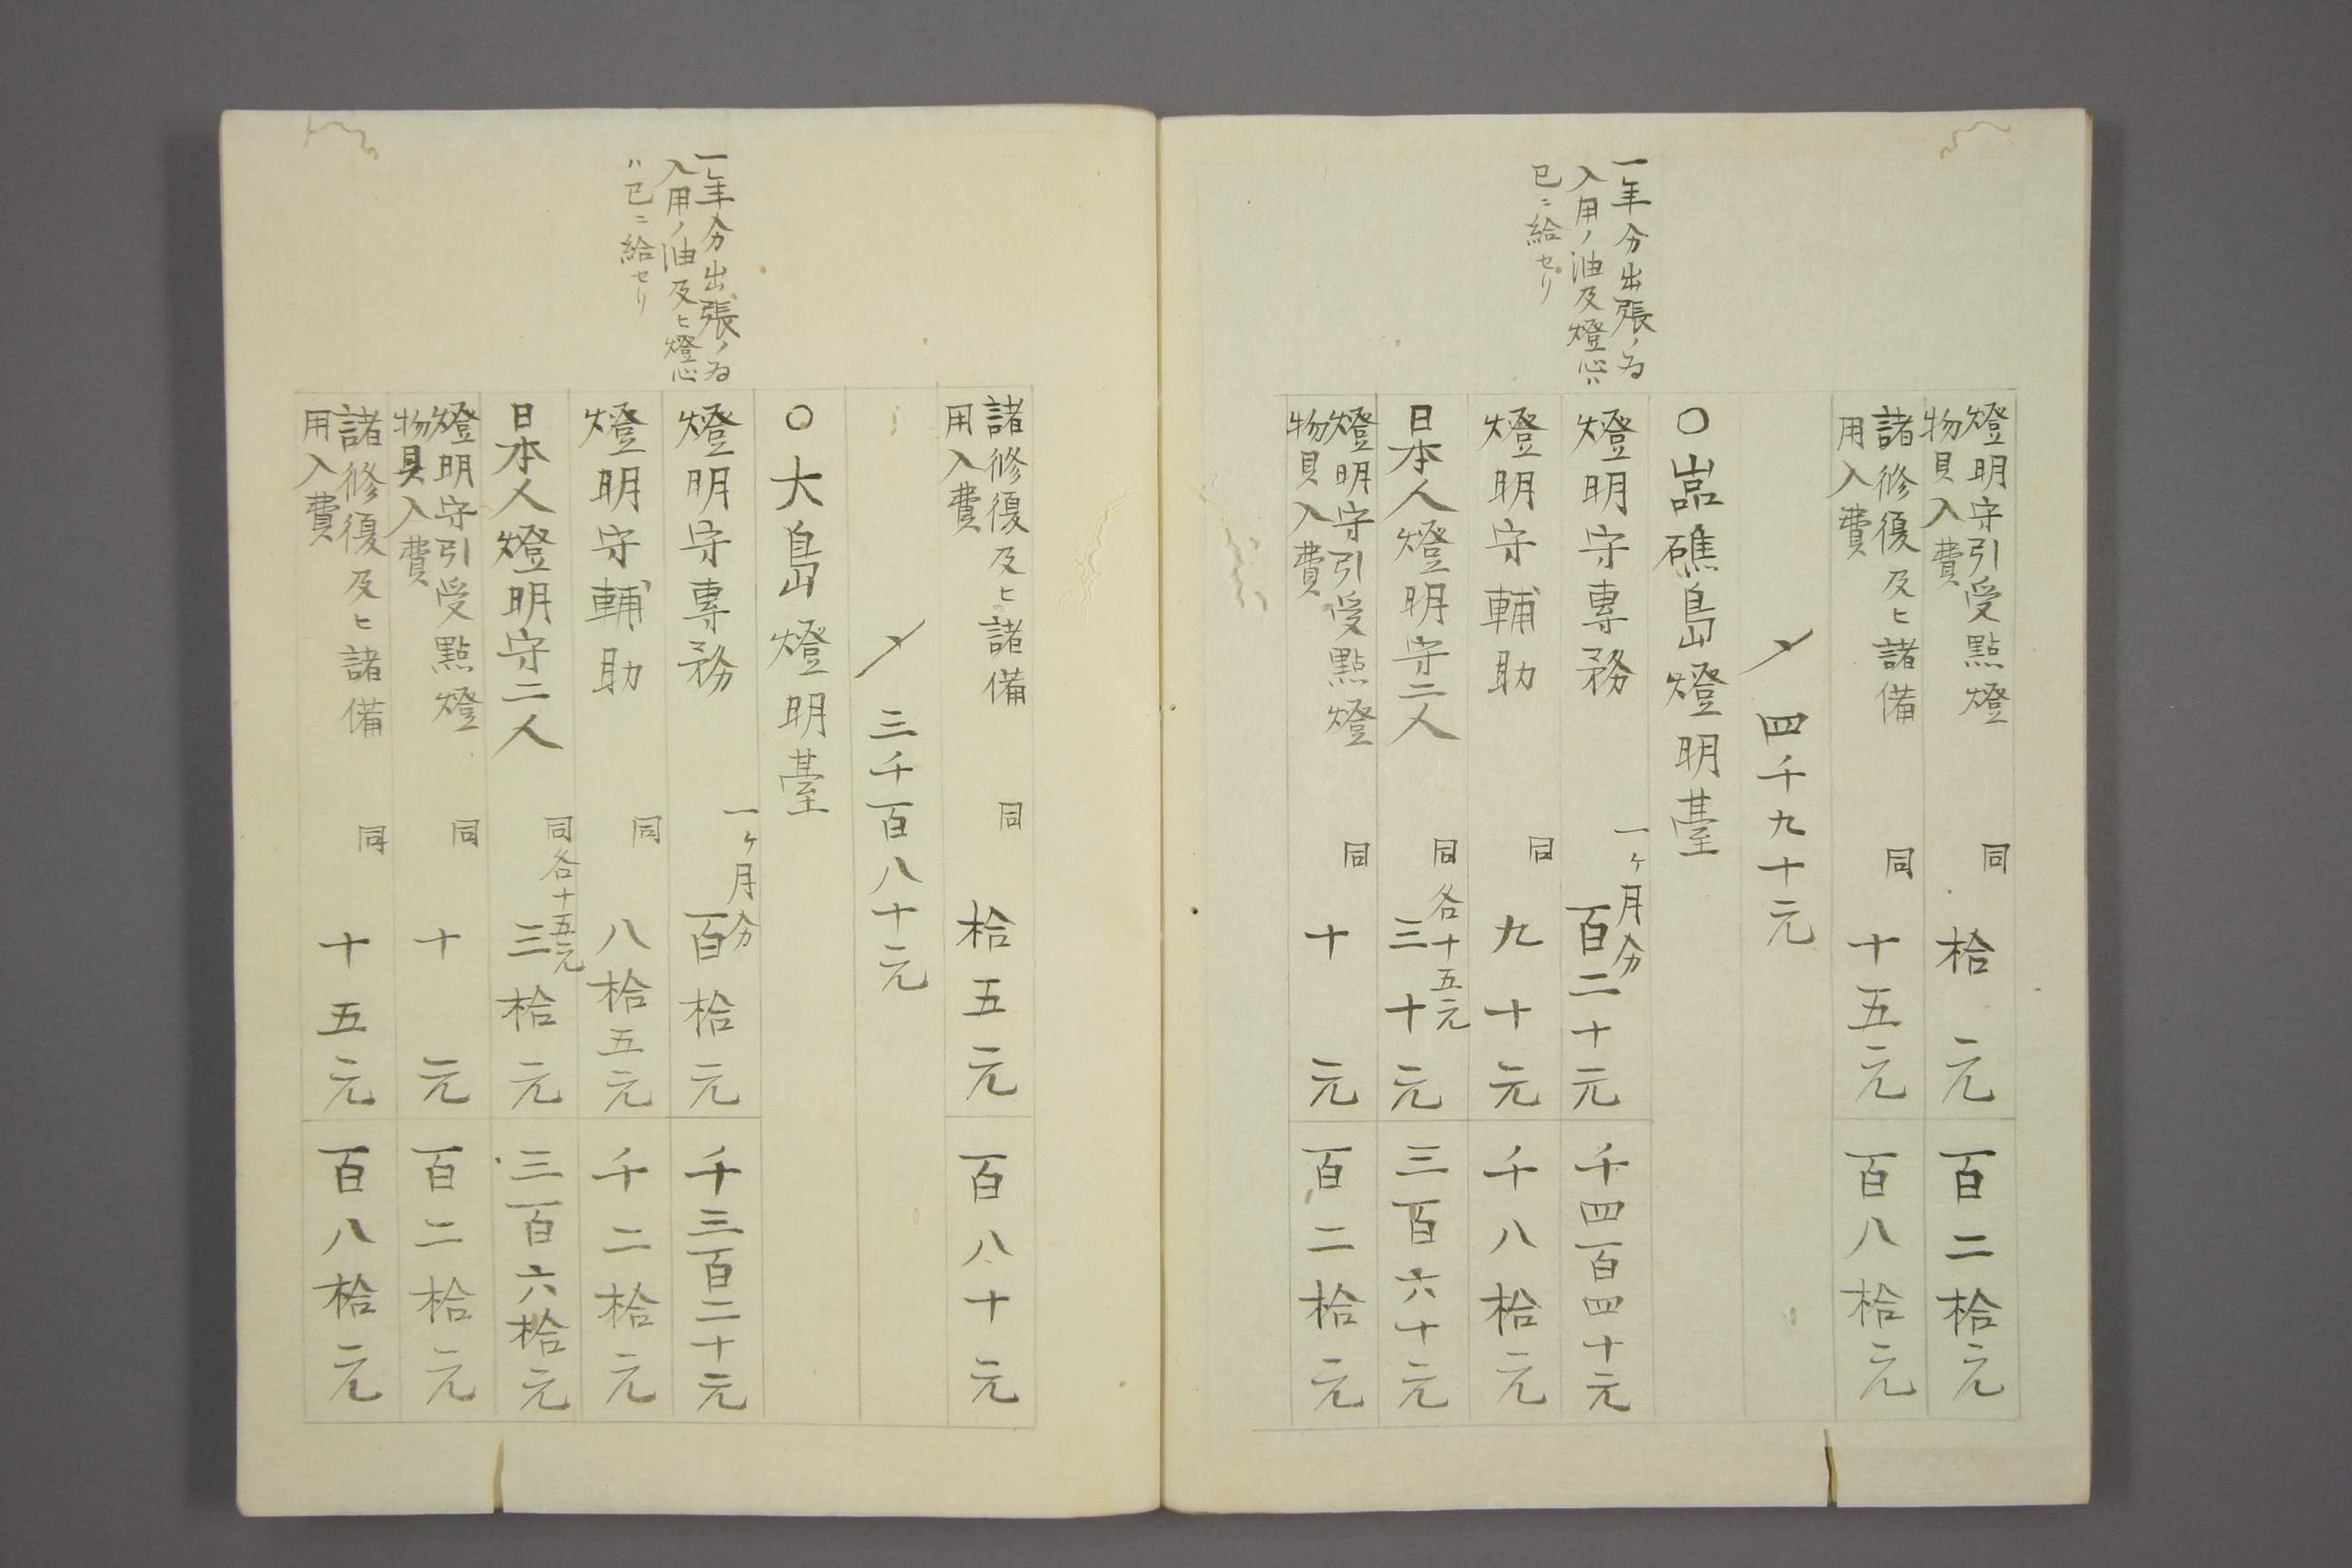 燈明守引受點燈
物具入費
同
拾元
百二拾元
諸修復及ヒ諸備
用入費
同
十五元
百八拾元
〆四千九十元
一年分出張ノ為
入用ノ油及燈心ハ
已ニ給セリ
○嵓礁島燈明臺
燈明守專務
一ヶ月分
百二十元
千四百四十元
燈明守輔助
同
九十元
千八拾元
日本人燈明守二人
同各十五元
三十元
三百六十元
燈明守引受點燈
物具入費
同
十元
百二拾元
諸修復及ヒ諸備
用入費
同
拾五元
百八十元
〆三千百八十元
一年分出張ノ為
入用ノ油及ヒ燈心
ハ已ニ給セリ
○大島燈明臺
燈明守專務
一ヶ月分
百拾元
千三百二十元
燈明守輔助
同
八拾五元
千二拾元
日本人燈明守二人
同各十五元
三拾元
三百六拾元
燈明守引受點燈
物具入費
同
十元
百二拾元
諸修復及ヒ諸備
用入費
同
十五元
百八拾元